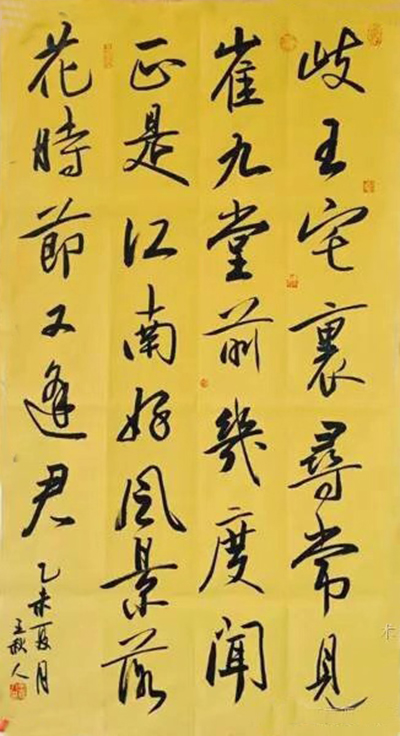 歧王宅裏尋常見
崔九堂前幾度聞
正是江南好風景落
花時節又逢君
乙未夏月
王秋人